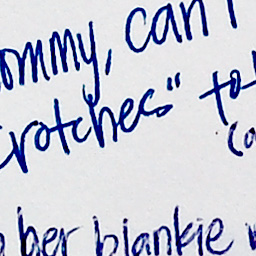 ommy, can I
crotches" to
ber blankie